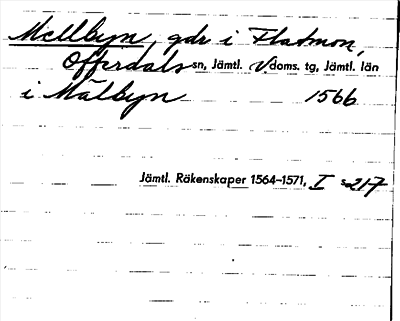 Mellbyn, gdr i Flatmon,
Offerdals sn, Jämtl. V doms. tg, Jämtl. län
i Mälbyn 1566
Jämtl. Räkenskaper 1564–1571, I s 217